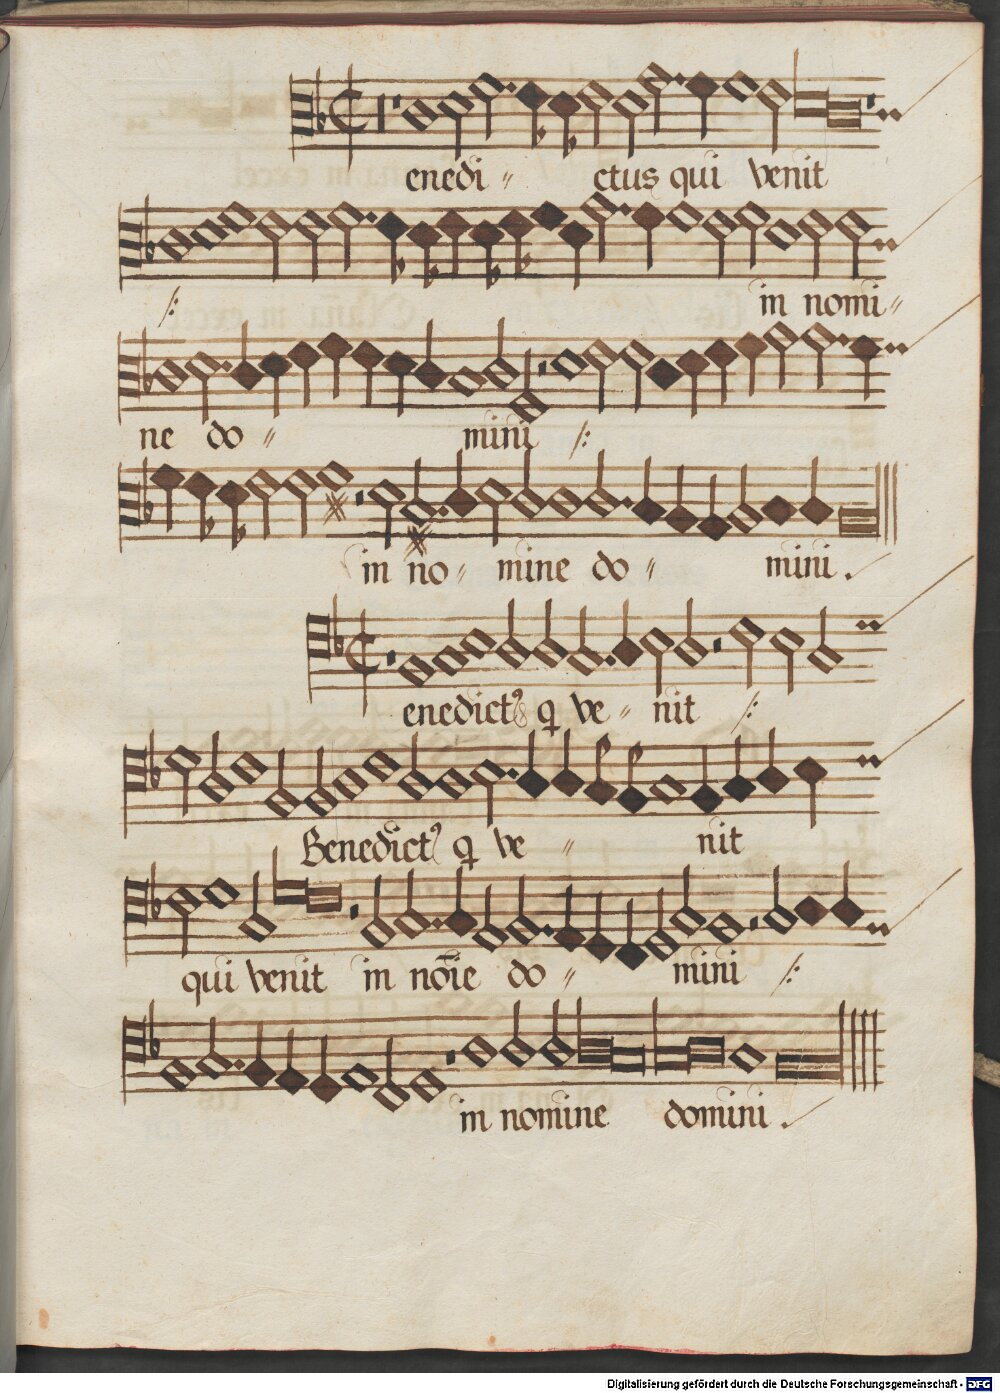 enedi - ctus qui venit
/: in nomi-
ne do - mini /:
in no- mine do - mini.
enedict9 q ve - nit /:
Benedict9 q ve - nit
qui venit in no̅ie do - mini /:
in nomine domini.
Digitalisierung gefördert durch die Deutsche Forschungsgemeinschaft - DFG